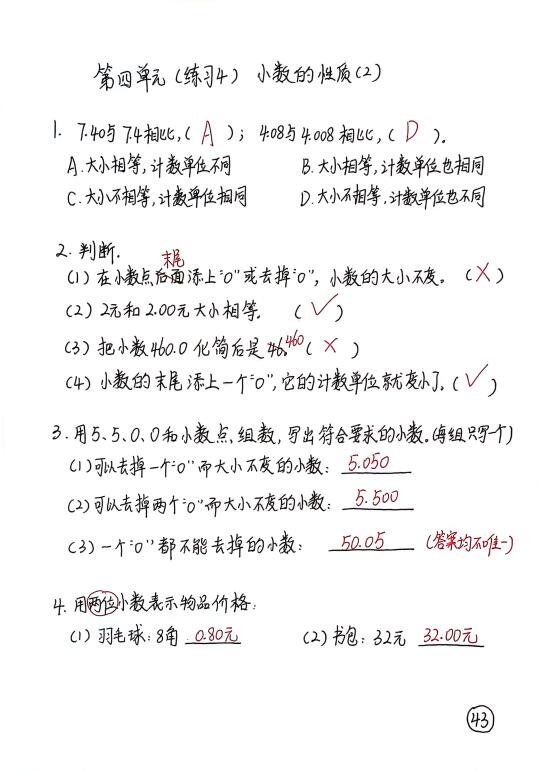 第四单元（练习4） 小数的性质(2)
1. 7.40与7.4相比,( A )；4.08与4.008相比,( D ).
A.大小相等,计数单位不同 B.大小相等,计数单位也相同
C.大小不相等,计数单位相同 D.大小不相等,计数单位也不同
2.判断.
末尾
(1) 在小数点后面添上"0"或去掉"0"，小数的大小不变。(×)
(2) 2元和2.00元大小相等. (✓)
(3) 把小数460.0化简后是46。460 (×)
(4) 小数的末尾添上一个"0",它的计数单位就变小了.(✓)
3.用5、5、0、0和小数点,组数,写出符合要求的小数.(每组只写一个)
(1)可以去掉一个"0"而大小不变的小数: 5.050
(2)可以去掉两个"0"而大小不变的小数: 5.500
(3)一个"0"都不能去掉的小数: 50.05 (答案均不唯一)
4.用两位小数表示物品价格:
(1)羽毛球:8角 0.80元 (2)书包:32元 32.00元
43